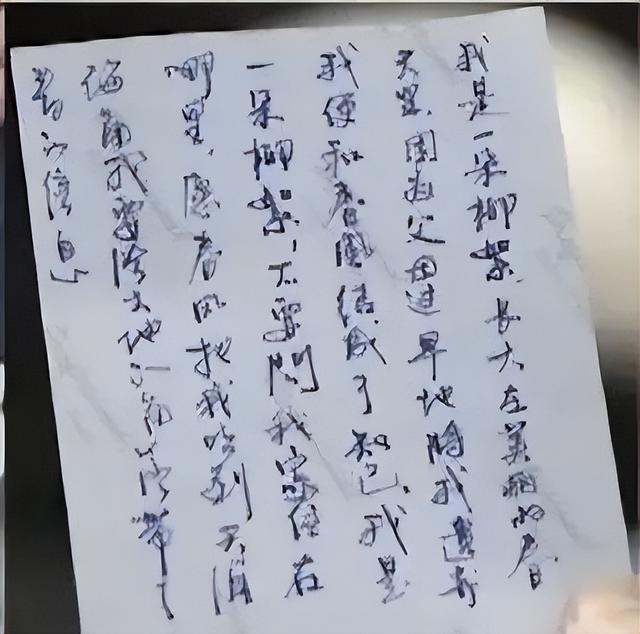 我是一朵柳絮,长大在美丽的春
天里,因为父母过早地将我遗弃
我便和春风结成了知己,我是
一朵柳絮,不要問我家住在
哪里,愿春风把我吹到天涯
海角我要给大地的角落带
春的信息